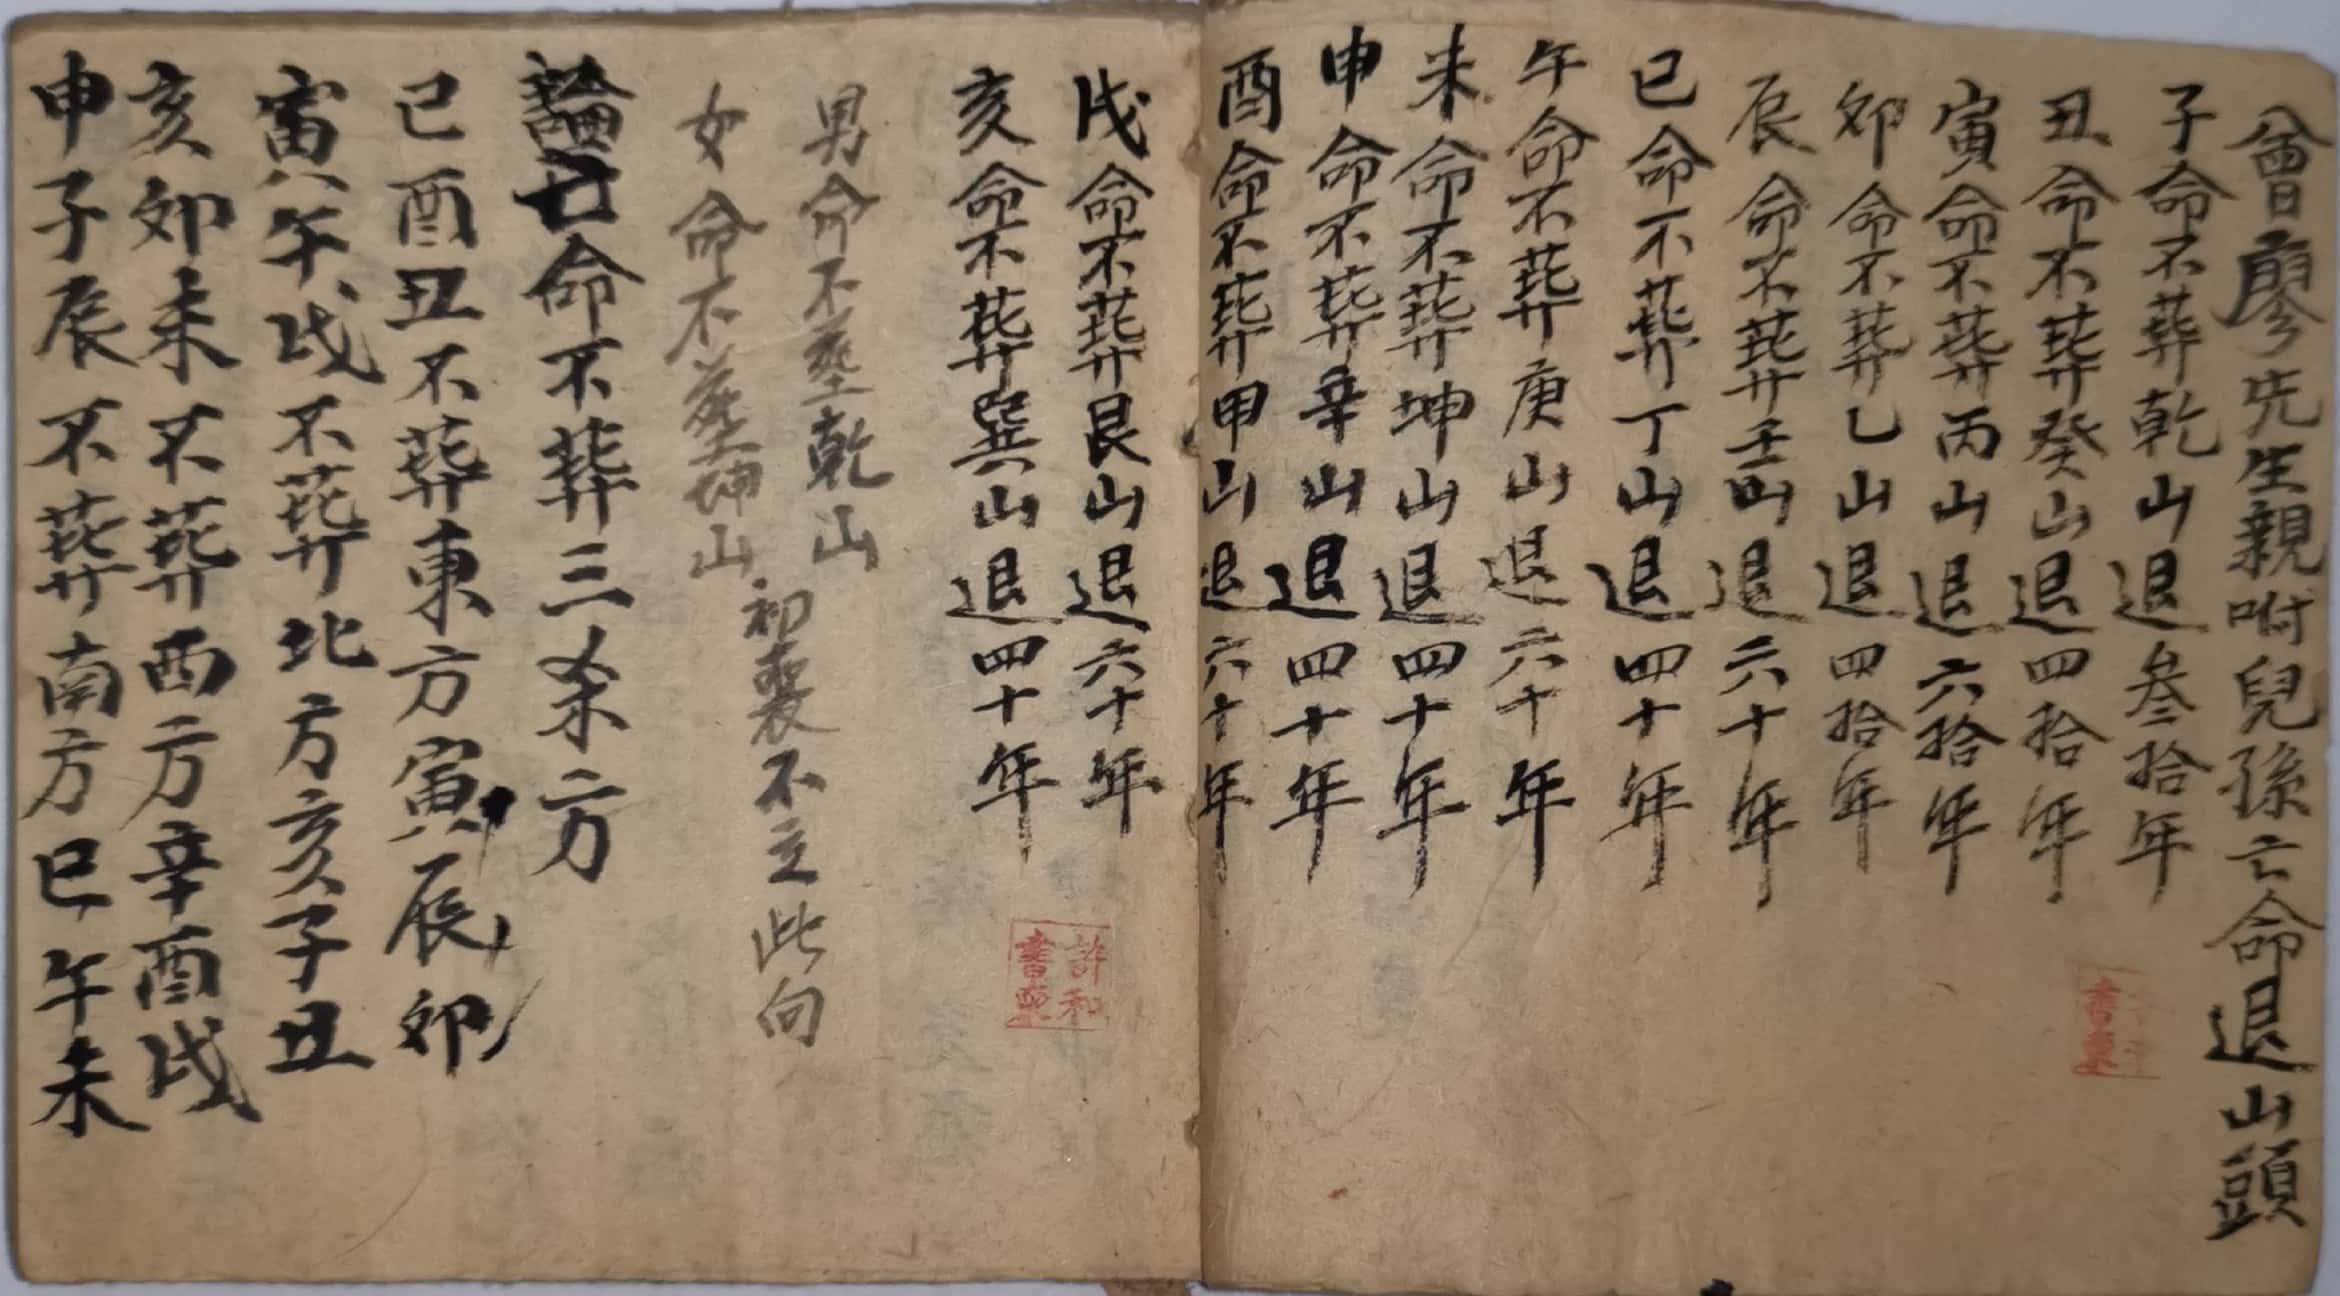 曾廖先生親咐兒孫亡命退山頭
子命不葬乾山退叁拾年
丑命不葬癸山退四拾年
寅命不葬丙山退六拾年
卯命不葬乙山退四拾年
辰命不葬壬山退六十年
巳命不葬丁山退四十年
午命不葬庚山退六十年
未命不葬坤山退四十年
申命不葬辛山退四十年
酉命不葬甲山退六十年
戌命不葬艮山退六十年
亥命不葬巽山退四十年
男命不塟乾山
女命不塟坤山
初喪不立此向
論亡命不葬三杀方
巳酉丑不葬東方寅辰卯
寅午戌不葬北方亥子丑
亥卯未不葬西方辛酉戌
申子辰不葬南方巳午未
許和
書
書